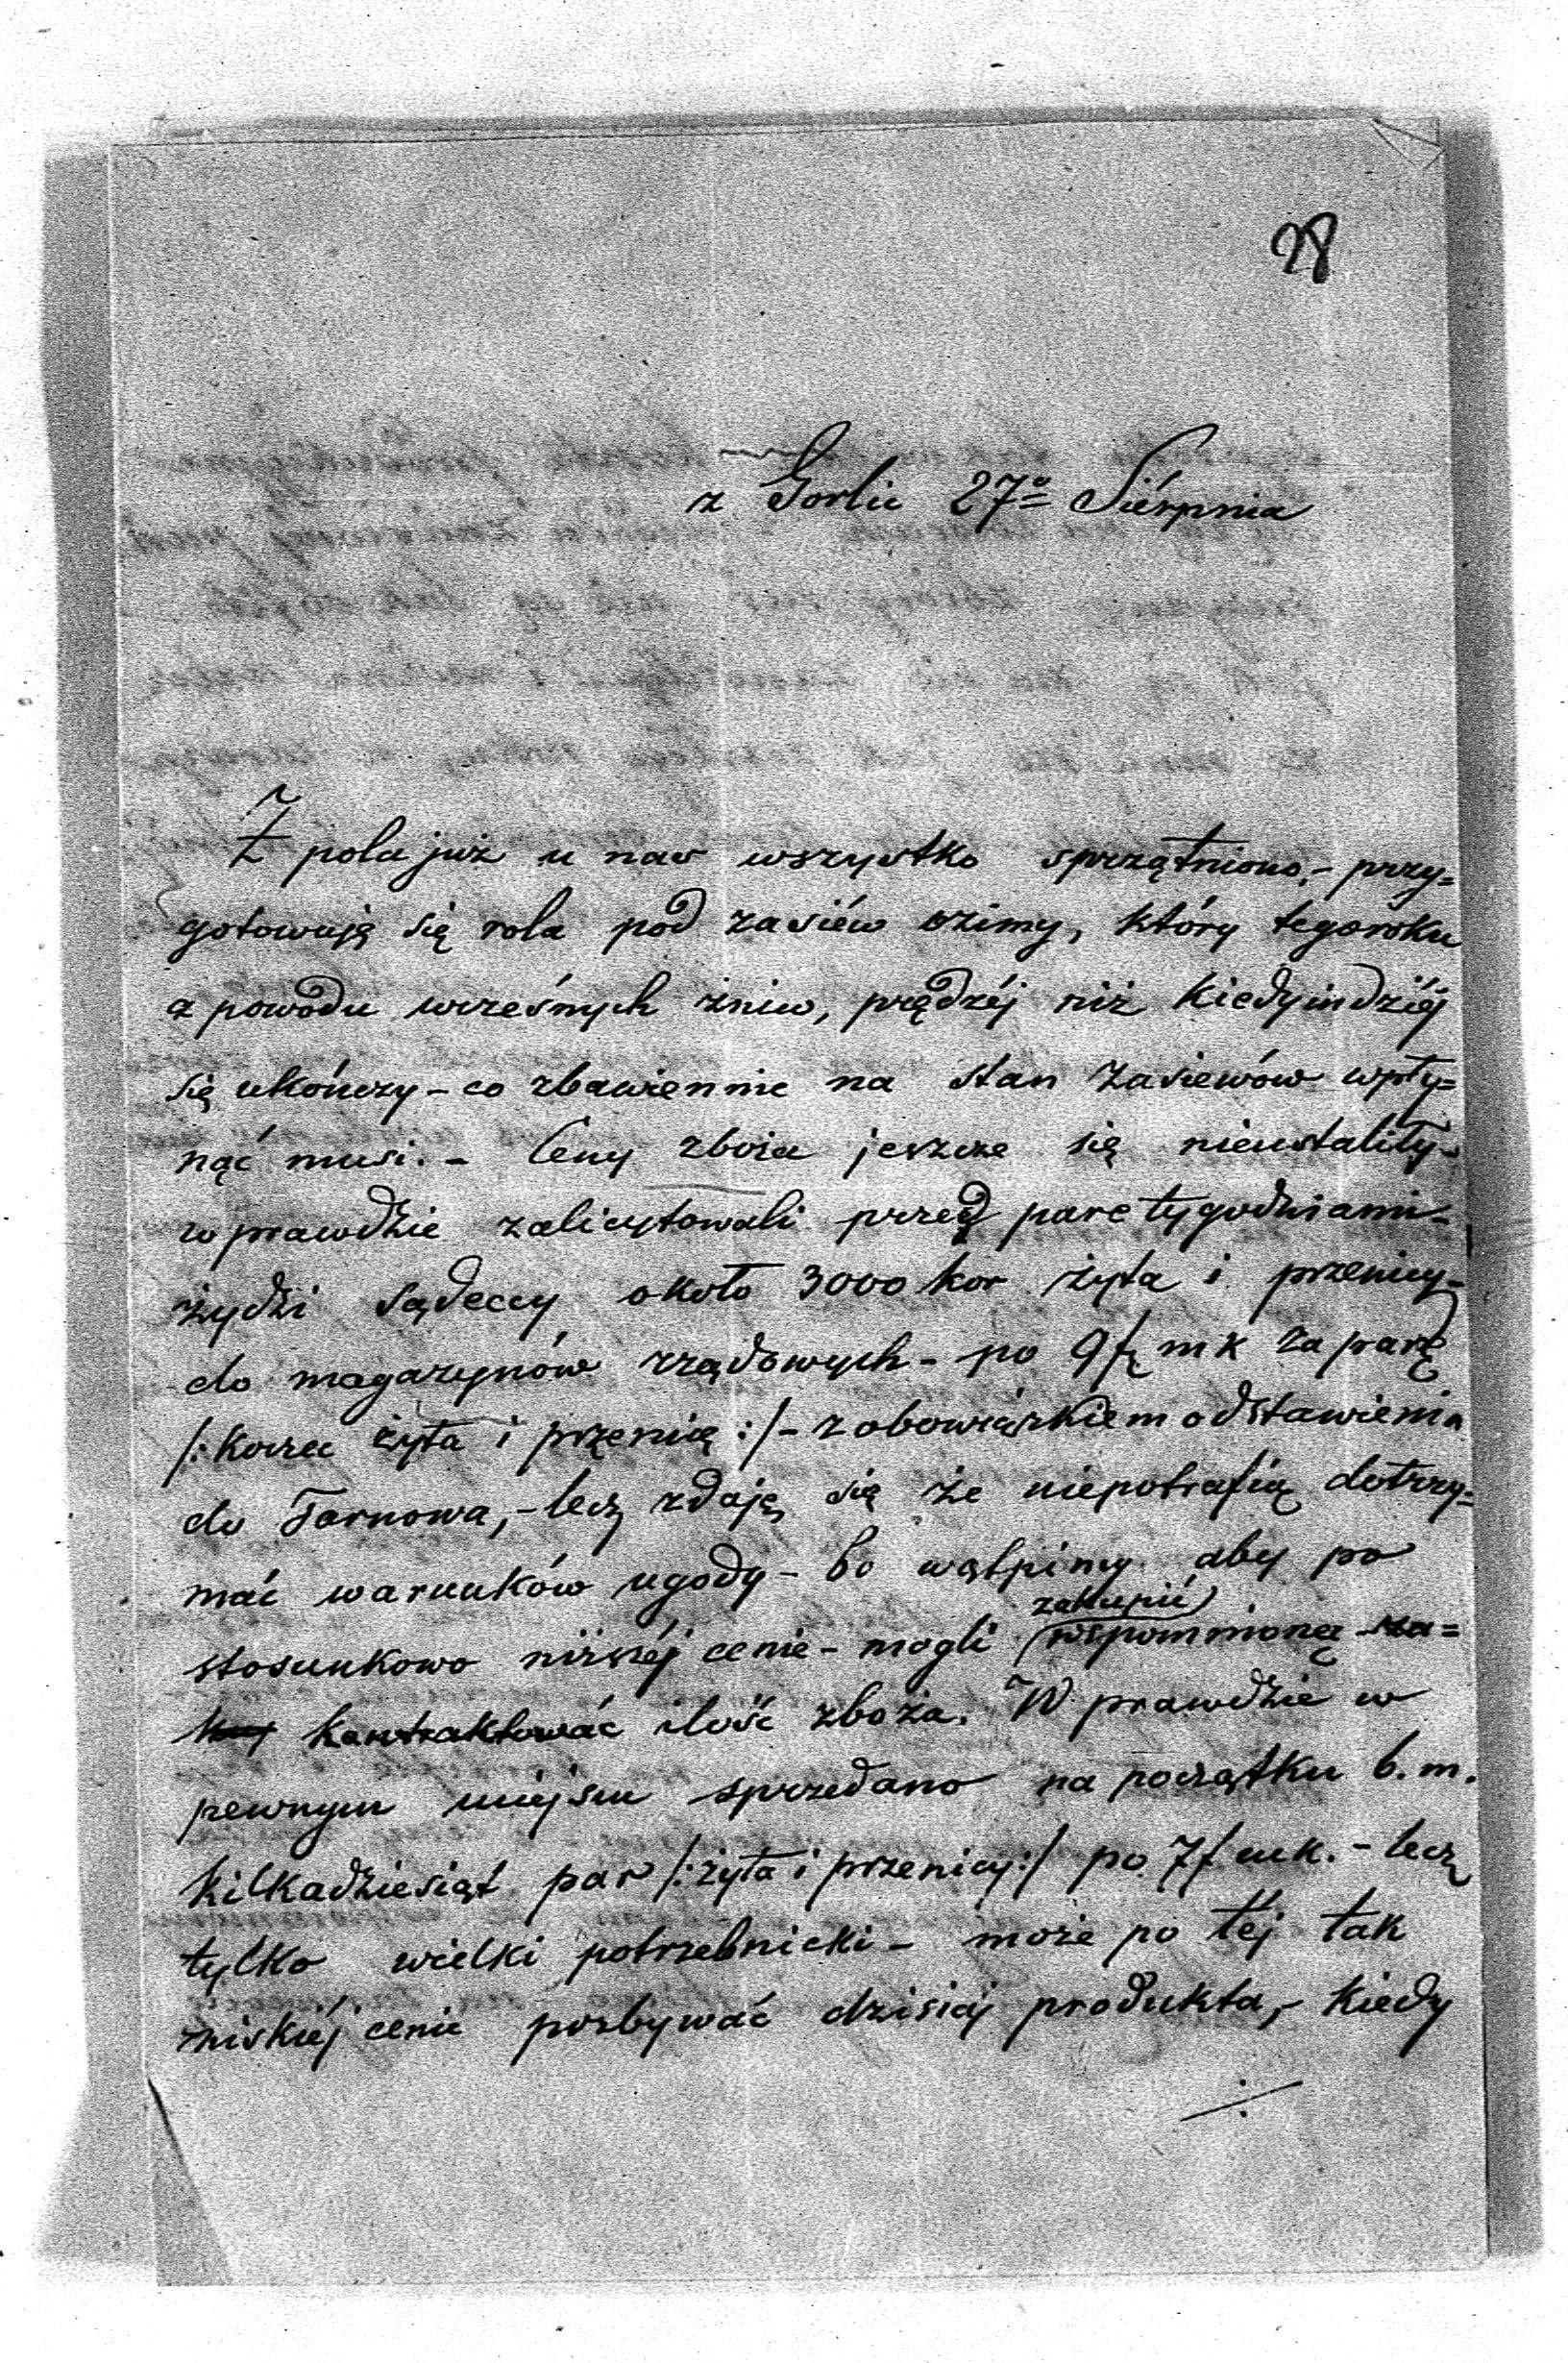 28
z Gorlic 27º Siérpnia
Z pola już u nas wszystko sprzątniono, – przy=
gotowują się rola pod zasiéw ozimy, który tegoroku
z powodu wrześnych żniw, prędzéj niż kiedyindziéj
się ukończy – co zbawiennie na stan zasiewów wpły=
nąć musi. – Ceny zboża jeszcze się nieustaliły –
w prawdzie zalicytowali przed parę tygodniami –
żydzi sądeccy około 3000 kor żyta i przenicy –
do magazynów rządowych – po 9 f mk za parę
/: korzec żyta i przenicę :/ – z obowiązkiem odstawienia
do Tarnowa, – lecz zdają się że niepotrafią dotrzy=
mać warunków ugody – bo wątpimy aby po
zakupić
stosunkowo nizkéj cenie – mogli wspomnioną za=
kontraktować ilość zboża. W prawdzie w
pewnym miejscu sprzedano na początku b. m.
kilkadziesiąt par /: żyta i przenicy :/ po 7 f mk. – lecz
tylko wielki potrzebnicki – może po téj tak
zniskiéj cenie pozbywać dzisiaj produkta, – kiedy
./.